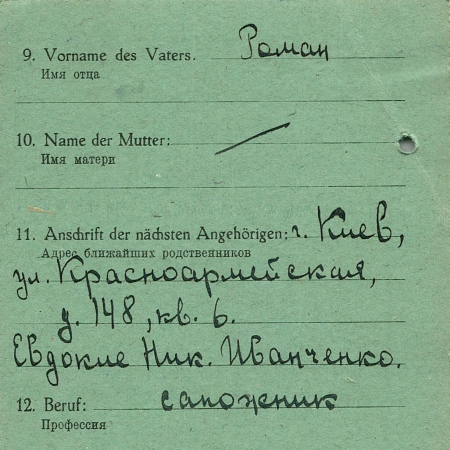 9. Vorname des Vaters. Роман
Имя отца
10. Name der Mutter: —
Имя матери
11. Anschrift der nächsten Angehörigen: г. Киев,
Адрес ближайших родственников
ул. Красноармейская,
д. 148, кв. 6.
Евдокие Ник. Иванченко.
12. Beruf: сапожник
Профессия